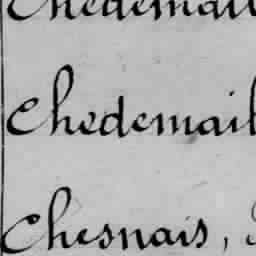 Chedemail
Chedemail
Chesnais,